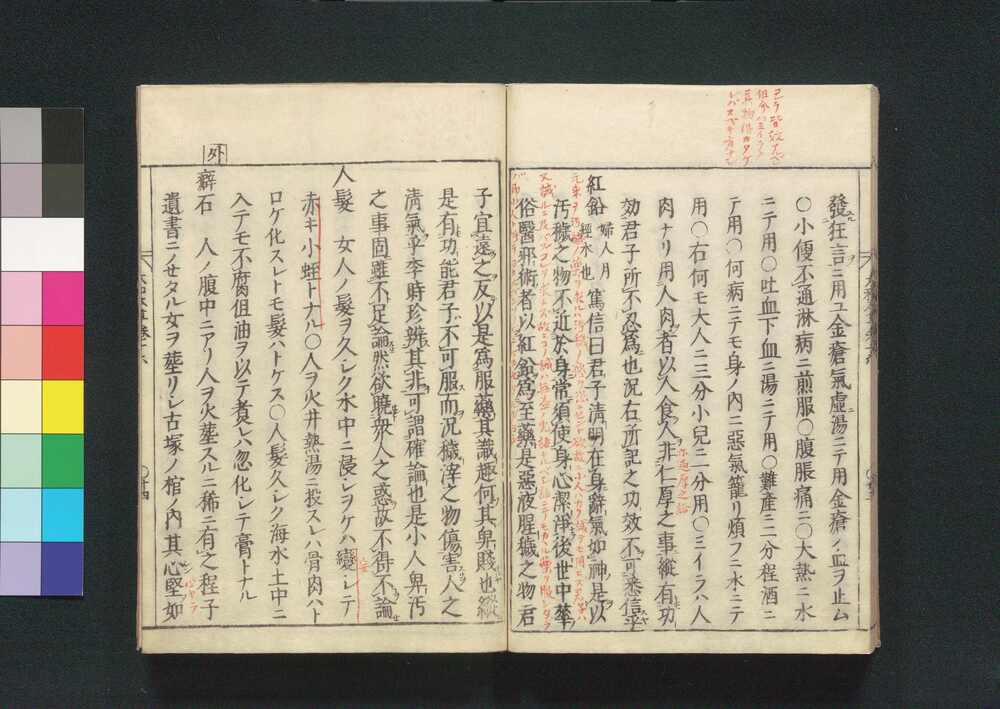 發狂言ニ用ユ金瘡氣虛湯ニテ用金瘡ノ血ヲ止ム
〇小便不通淋病ニ煎服〇腹脹痛ニ〇大熱ニ水
ニテ用〇吐血下血ニ湯ニテ用〇難產ニ二分程酒ニ
テ用〇何病ニテモ身ノ內ニ惡氣籠リ煩フニ水ニテ
用〇右何モ大人ニ三分小兒ニ二分用〇ミイラハ人
肉ナリ用人肉者以人食人非仁厚之事縱有功
効君子所不忍爲也況右所記之功效不可悉信乎
紅鉛 婦人月經水也 篤信曰君子淸明在身辭氣如神是以
汚穢之物不近於身常須使身心潔淨後世中華
俗醫邪術者以紅鉛爲至藥是惡液腥穢之物君
子宜遠之反以是爲服藥其識趣何其卑賤也縱
是有功能君子不可服而況穢滓之物傷害人之
淸氣乎李時珍辨其非可謂確論也是小人卑汚
之事固雖不足論然欲曉衆人之惑故不得不論
人髮 女人ノ髮ヲ久シク水中ニ浸シヲケハ變シテ
赤キ小蛭トナル〇人ヲ火井熱湯ニ投スレハ骨肉ハト
ロケ化スレトモ髮ハトケス〇人髮久シク海水土中ニ
入テモ不腐但油ヲ以テ煮レハ忽化シテ膏トナル
外
癖石 人ノ腹中ニアリ人ヲ火葬スルニ稀ニ有之程子
遺書ニノセタル女ヲ葬リシ古塚ノ棺ノ內其心堅如